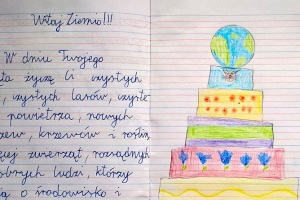 Witaj Ziemio!!!
W dniu Twojego
ta życzę Ci czystych
, czystych lasów, czyste
powietrza, nowych
zew, krzewów i roślin,
cej zwierząt, rozsądnych
obrych ludzi, którzy
ą o środowisko i